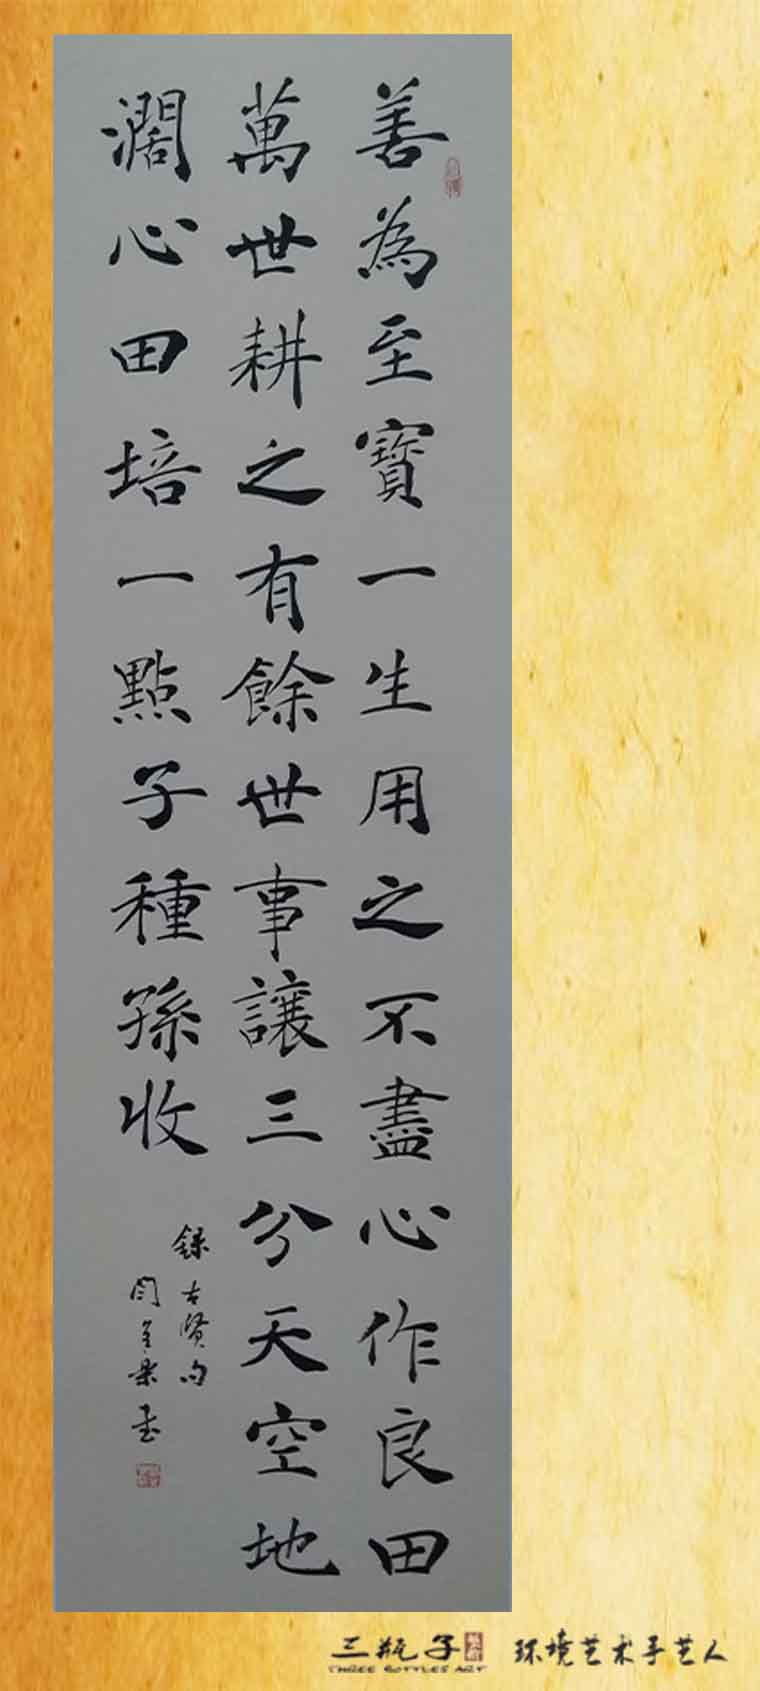 善為至寶一生用之不盡心作良田
萬世耕之有餘世事讓三分天空地
濶心田培一點子種孫收
錄古贤句
三瓶子
THREE BOTTLES ART
环境艺术手艺人